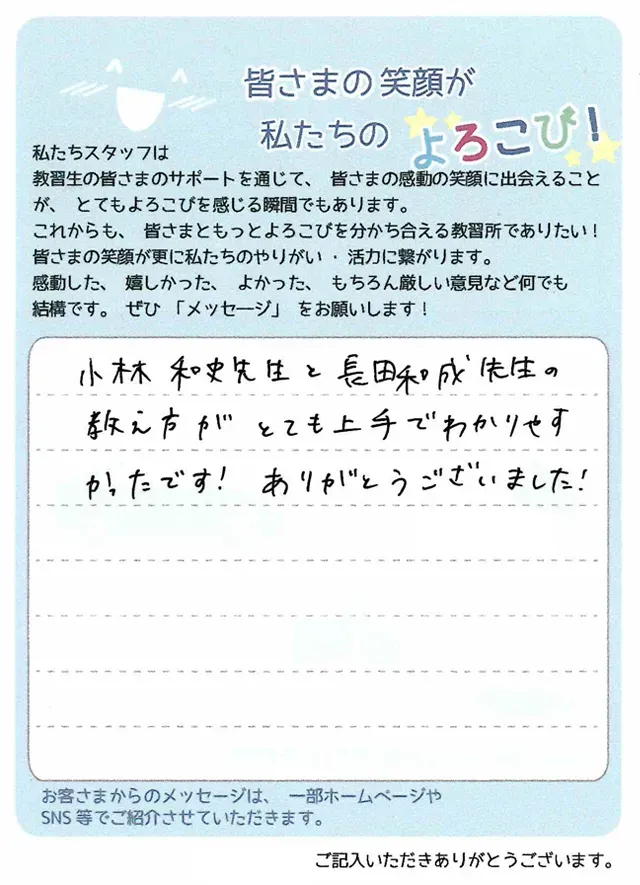 皆さまの笑顔が
私たちの よろこび！
私たちスタッフは
教習生の皆さまのサポートを通じて、 皆さまの感動の笑顔に出会えること
が、 とてもよろこびを感じる瞬間でもあります。
これからも、 皆さまともっとよろこびを分かち合える教習所でありたい！
皆さまの笑顔が更に私たちのやりがい・活力に繋がります。
感動した、 嬉しかった、 よかった、 もちろん厳しい意見など何でも
結構です。 ぜひ 「メッセージ」 をお願いします！
小林 和史先生と長田和成先生の
教え方が とても上手でわかりやす
かったです! ありがとうございました!
お客さまからのメッセージは、 一部ホームページや
SNS 等でご紹介させていただきます。
ご記入いただきありがとうございます。